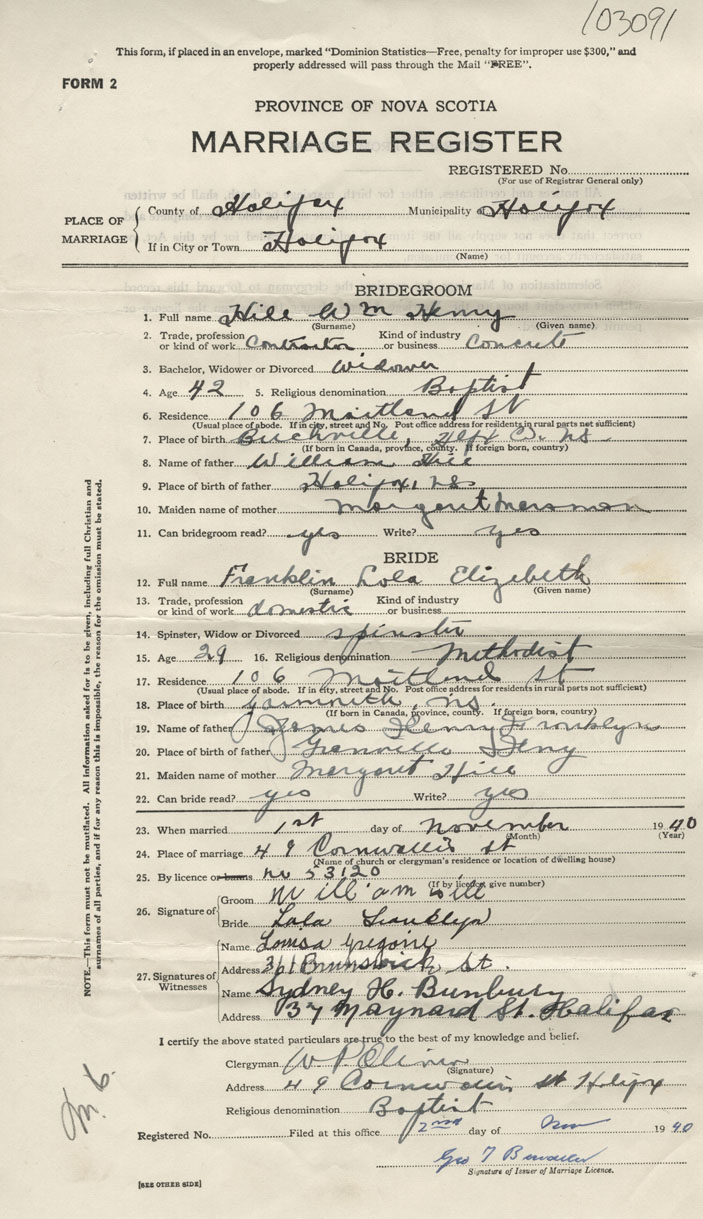 103091
This form, if placed in an envelope, marked "Dominion Statistics—Free, penalty for improper use $300," and
properly addressed will pass through the Mail "FREE".
FORM 2
PROVINCE OF NOVA SCOTIA
MARRIAGE REGISTER
REGISTERED No.
(For use of Registrar General only)
PLACE OF MARRIAGE
County of Halifax Municipality Halifax
If in City or Town Halifax
(Name)
BRIDEGROOM
1. Full name Hill Wm Henry
(Surname) (Given name)
2. Trade, profession or kind of work Contractor Kind of industry or business Concrete
3. Bachelor, Widower or Divorced widower
4. Age 42 5. Religious denomination Baptist
6. Residence 106 Maitland St
(Usual place of abode. If in city, street and No. Post office address for residents in rural parts not sufficient)
7. Place of birth Hlfx Co. NS
(If born in Canada, province, county. If foreign born, country)
8. Name of father William Hill
9. Place of birth of father Halifax, NS
10. Maiden name of mother Margaret
11. Can bridegroom read? yes Write? yes
BRIDE
12. Full name Franklin Lola Elizabeth
(Surname) (Given name)
13. Trade, profession or kind of work domestic Kind of industry or business
14. Spinster, Widow or Divorced spinster
15. Age 29 16. Religious denomination Methodist
17. Residence 106 Maitland St
(Usual place of abode. If in city, street and No. Post office address for residents in rural parts not sufficient)
18. Place of birth Yarmouth, NS.
(If born in Canada, province, county. If foreign born, country)
19. Name of father James Henry Franklyn
20. Place of birth of father Granville Ferry
21. Maiden name of mother Margaret Hill
22. Can bride read? yes Write? yes
23. When married 1st day of November 1940
(Month) (Year)
24. Place of marriage 49 Cornwallis St
(Name of church or clergyman's residence or location of dwelling house)
25. By licence or banns No 53120
(If by licence, give number)
26. Signature of
Groom William Hill
Bride Lola Franklyn
27. Signatures of Witnesses
Name Louisa Gregoire
Address 361 Brunswick St.
Name Sydney H. Bunbury
Address 37 Maynard St. Halifax
I certify the above stated particulars are true to the best of my knowledge and belief.
Clergyman W P Oliver
(Signature)
Address 49 Cornwallis St Halifax
Religious denomination Baptist
Registered No. Filed at this office 2nd day of Nov 1940
Geo T
Signature of Issuer of Marriage Licence.
[SEE OTHER SIDE]
NOTE.—This form must not be mutilated. All information asked for is to be given, including full Christian and
surnames of all parties, and if for any reason this is impossible, the reason for the omission must be stated.